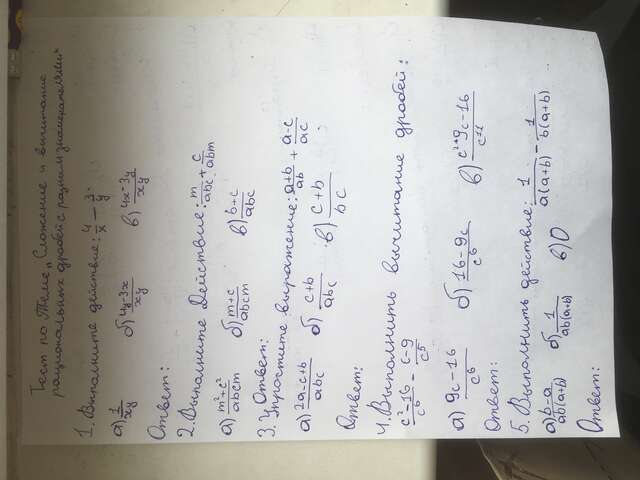 Тест по Теме „Сложение и вычитание
рациональных дробей с разными знаменателями"
1. Выполните действие: 4/x − 3/y.
а) 1/xy б) 4y−3x/xy в) 4x−3y/xy
Ответ:
2. Выполните Действие: m/abc + c/abm
а) m²+c²/abcm б) m+c/abcm в) b+c/abc
Ответ:
3. Упростите выражение: a+b/ab + a−c/ac
а) 2a−c+b/abc б) c+b/abc в) c+b/bc
Ответ:
4. Выполнить вычитание дробей:
c²−16/c⁶ − c−9/c⁵
а) 9c−16/c⁶ б) 16−9c/c⁶ в) c²+9c−16/c¹¹
Ответ:
5. Выполнить действие: 1/a(a+b) − 1/b(a+b)
а) b−a/ab(a+b) б) 1/ab(a+b) в) 0
Ответ: